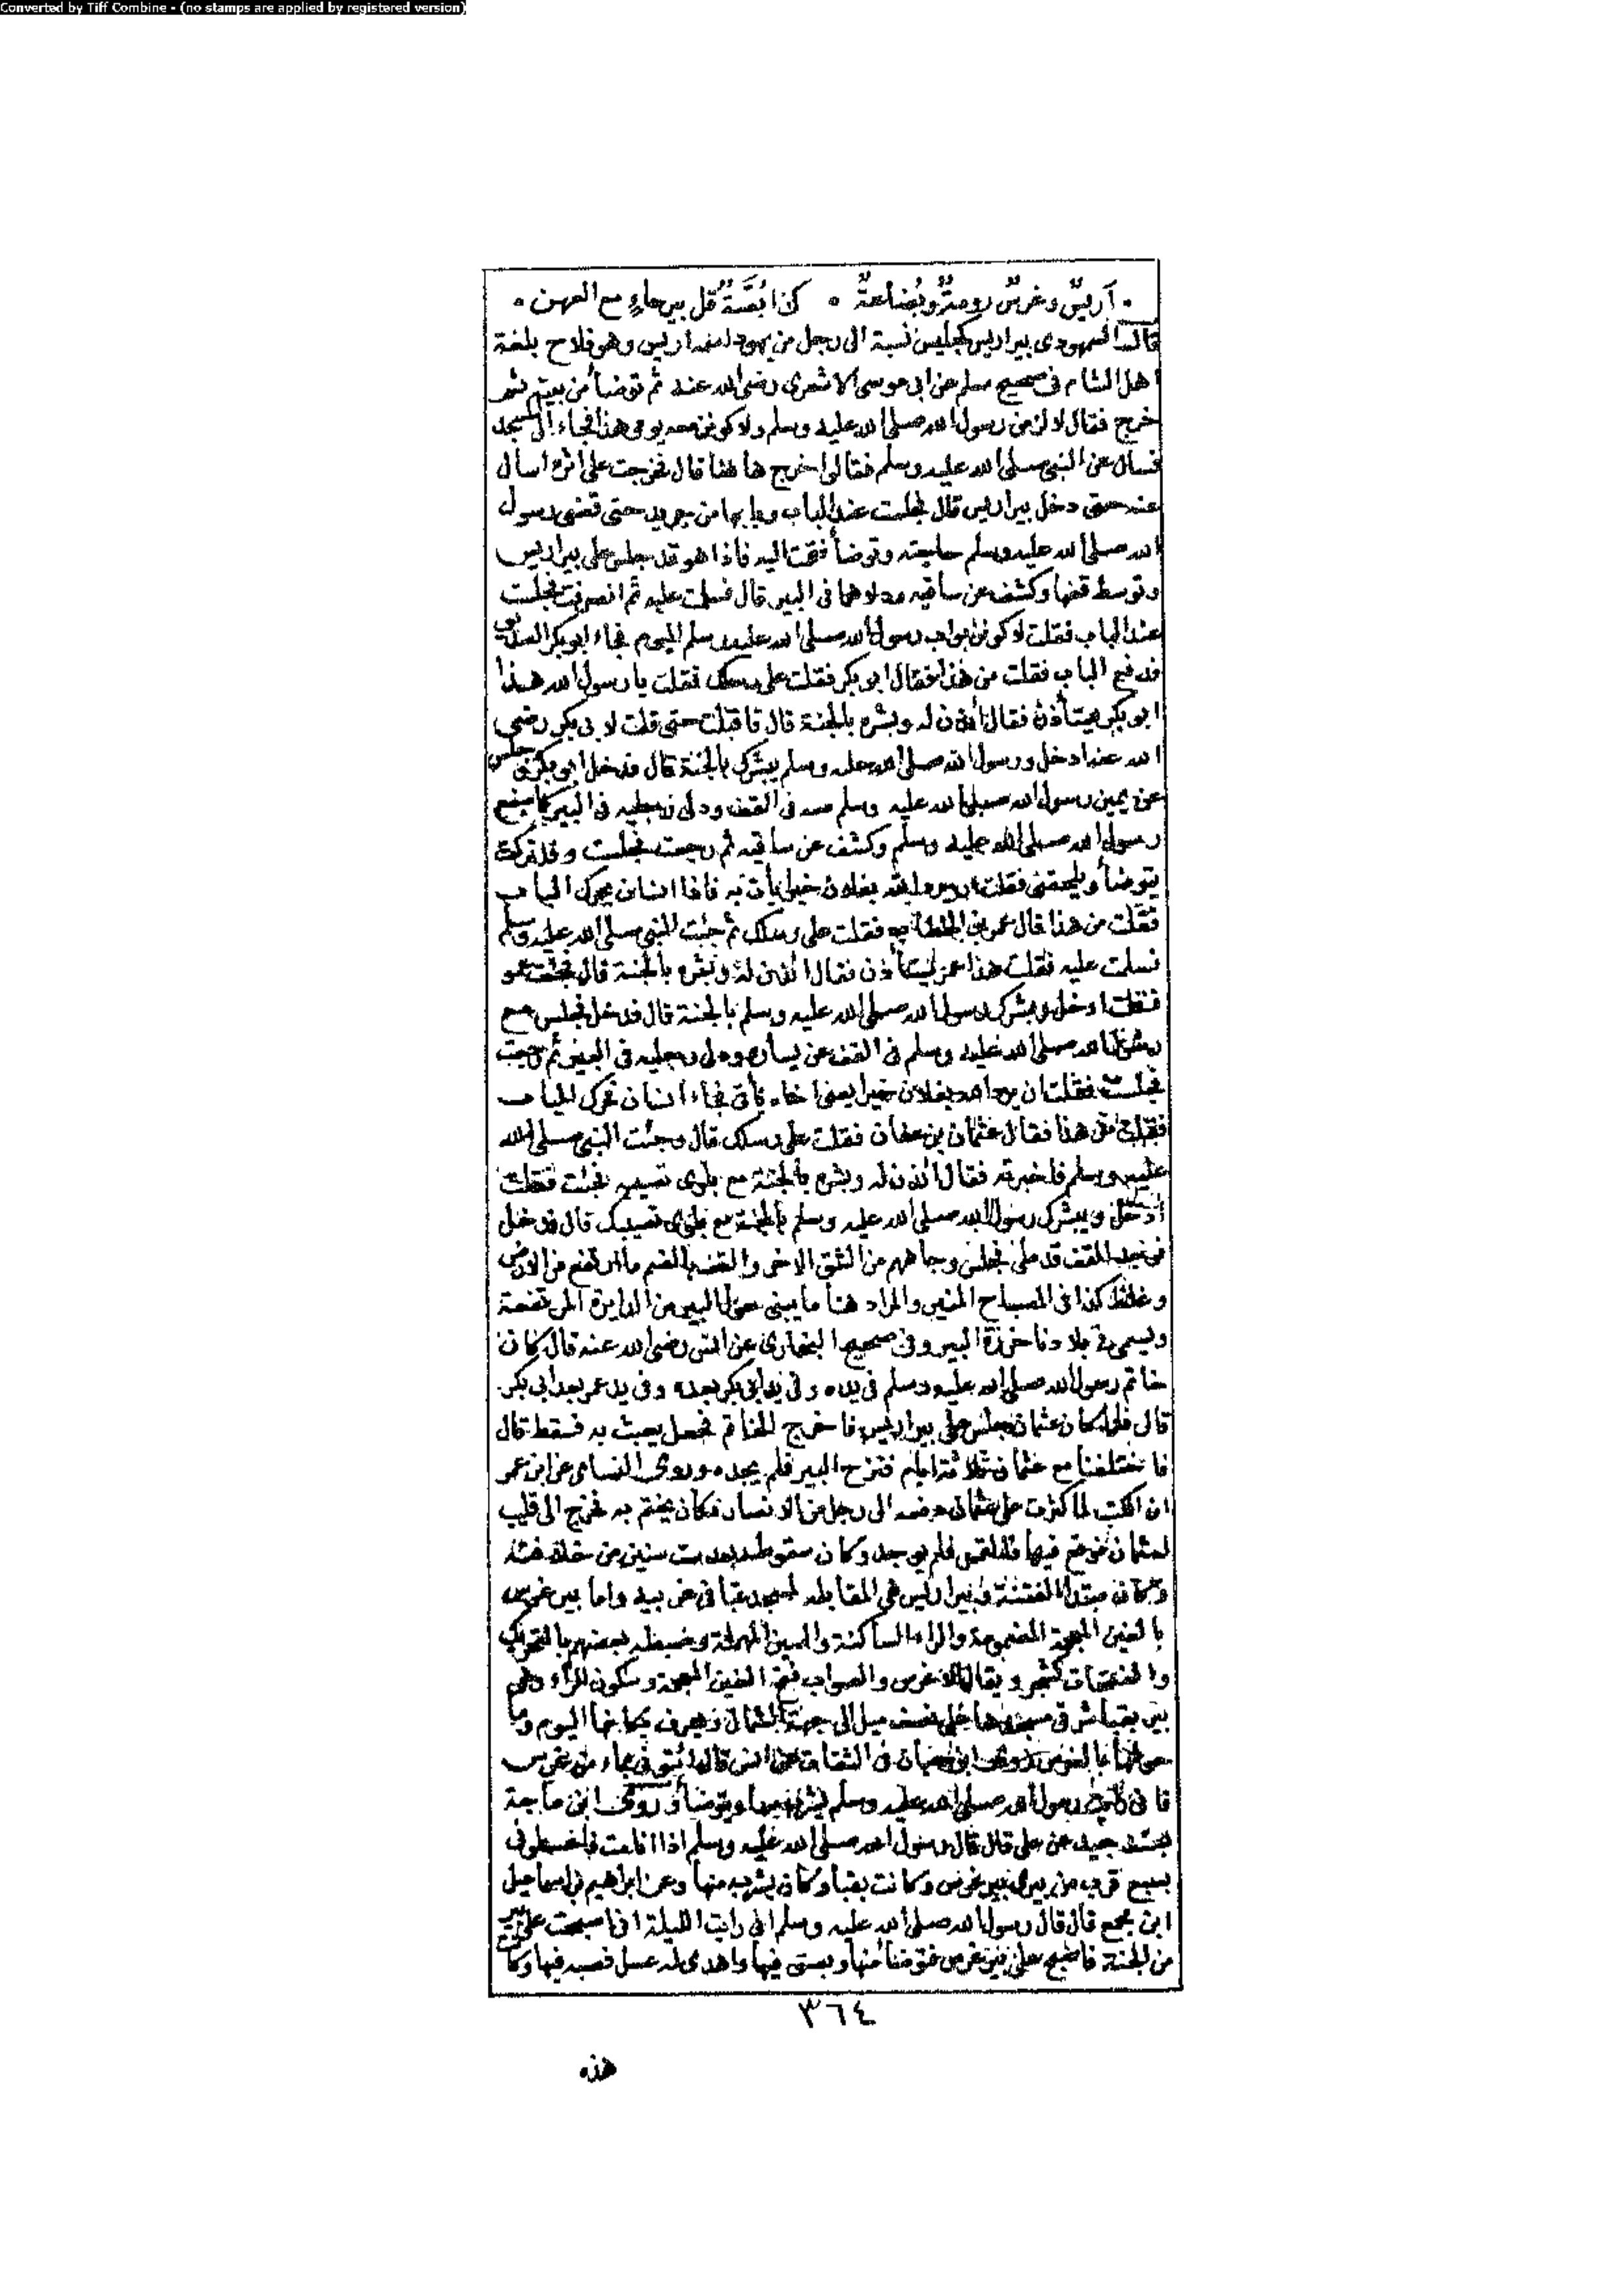 Converted by Tiff Combine - (no stamps are applied by registered version)
۰ آريسٌ وغرسٌ رومةٌ وبُضاعةٌ ۰ كذا بُصَّةٌ قل بيرحاءٍ مع العهن ۰
قال السمهودى بيراريس كجليس نسبة الى رجل من يهود اسمه اريس وهو فلاح بلغة
اهل الشام فى صحيح مسلم عن ابى موسى الاشعرى رضى الله عنه ثم توضأ من بيته ثم
خرج فقال لالزمن رسول الله صلى الله عليه وسلم ولاكونن معه يومى هذا فجاء الى المسجد
فسال عن النبى صلى الله عليه وسلم فقالوا خرج هاهنا قال فخرجت على اثره اسال
عنه حتى دخل بيراريس قال فجلست عند الباب وبابها من جريد حتى قضى رسول
الله صلى الله عليه وسلم حاجته وتوضأ فقمت اليه فاذا هو قد جلس على بيراريس
وتوسط قفها وكشف عن ساقيه ودلاهما فى البير قال فسلمت عليه ثم انصرفت فجلست
عند الباب فقلت لاكونن بواب رسول الله صلى الله عليه وسلم اليوم فجاء ابو بكر الصديق
فدفع الباب فقلت من هذا فقال ابو بكر فقلت على رسلك فقلت يا رسول الله هذا
ابو بكر يستأذن فقال أئذن له وبشره بالجنة قال فاقبلت حتى قلت لابى بكر رضى
الله عنه ادخل ورسول الله صلى الله عليه وسلم يبشرك بالجنة قال فدخل ابو بكر فجلس
عن يمين رسول الله صلى الله عليه وسلم معه فى القف ودلى رجليه فى البير كما صنع
رسول الله صلى الله عليه وسلم وكشف عن ساقيه ثم رجعت فجلست وقد تركت
يتوضأ ويلحقنى فقلت ان يرد الله بفلان خيرا يأت به فاذا انسان يحرك الباب
فقلت من هذا قال عمر بن الخطاب فقلت على رسلك ثم جئت النبى صلى الله عليه وسلم
فسلمت عليه فقلت هذا عمر يستأذن فقال ائذن له وبشره بالجنة قال فجئت عمر
فقلت ادخل وبشرك رسول الله صلى الله عليه وسلم بالجنة قال فدخل فجلس مع
رسول الله صلى الله عليه وسلم فى القف عن يساره ودلى رجليه فى البير ثم رجعت
فجلست فقلت ان يرد الله بفلان خيرا يعنى اخاه يأتى فجاء انسان فحرك الباب
فقلت من هذا فقال عثمان بن عفان فقلت على رسلك قال وجئت النبى صلى الله
عليه وسلم فاخبرته فقال ائذن له وبشره بالجنة مع بلوى تصيبه فجئت فقلت
ادخل ويبشرك رسول الله صلى الله عليه وسلم بالجنة مع بلوى تصيبك قال فدخل
فوجد القف قد ملئ فجلس وجاههم من الشق الاخر والقف بالضم ما ارتفع من الارض
وغلظ كذا فى المصباح المنير والمراد هنا ما يبنى حول البير من الدايرة المرتفعة
ويسمى فى بلادنا خرزة البير وفى صحيح البخارى عن انس رضى الله عنه قال كان
خاتم رسول الله صلى الله عليه وسلم فى يده وفى يد ابى بكر بعده وفى يد عمر بعد ابى بكر
قال فلما كان عثمان جلس على بيراريس فاخرج الخاتم فجعل يعبث به فسقط قال
فاختلفنا مع عثمان ثلاثة ايام فنزح البير فلم يجده وروى النسامى عن ابن عمر
ان الكتب لما كثرت على عثمان دفعه الى رجل من الانصار فكان يختم به فخرج الى قليب
لعثمان فوقع فيها فالتمس فلم يوجد وكان سقوطه بعد ست سنين من خلافته
وكان مبتدا الفتنة وبيراريس هى المقابله لمسجد قبا فى غربيه واما بير غرس
بالغين المعجمة المضمومة والراء الساكنة والسين المهملة وضبطه بعضهم بالتحريك
والفتحات كشجر ويقال الاغرس والصواب فتح الغين المعجمة وسكون الراء وهى
بير بقبا شرقى مسجدها على نصف ميل الى جهة الشمال ويعرف مكانها اليوم وما
حولها بالغرس روى ابن حبان فى الثقات عن انس قال ائتونى بماء من بير غرس
فانى رايت رسول الله صلى الله عليه وسلم يشرب منها ويتوضأ وروى ابن ماجة
بسند جيد عن على قال قال رسول الله صلى الله عليه وسلم اذا انامت فاغسلونى
بسبع قرب من بيرى بير غرس وكانت بقبا وكان يشرب منها وعن ابراهيم بن اسماعيل
ابن مجمع قال قال رسول الله صلى الله عليه وسلم انى رايت الليلة انى اصبحت على بير
من الجنة فاصبح على بير غرس فتوضأ منها وبسق فيها واهدى له عسل فصبه فيها وكان
٣٦٤
هذه